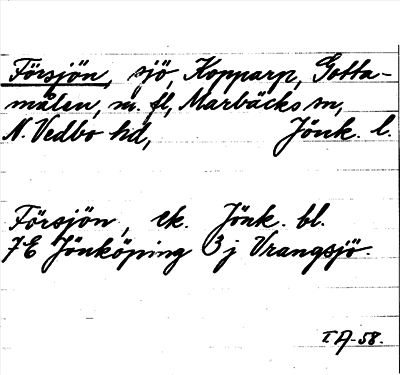 Försjön, sjö, Kopparp, Gotta-
målen, m. fl., Marbäcks sn,
N. Vedbo hd, Jönk. l.
Försjön, ek. Jönk. bl.
7E Jönköping 3j Vrangsjö.
IA-58.